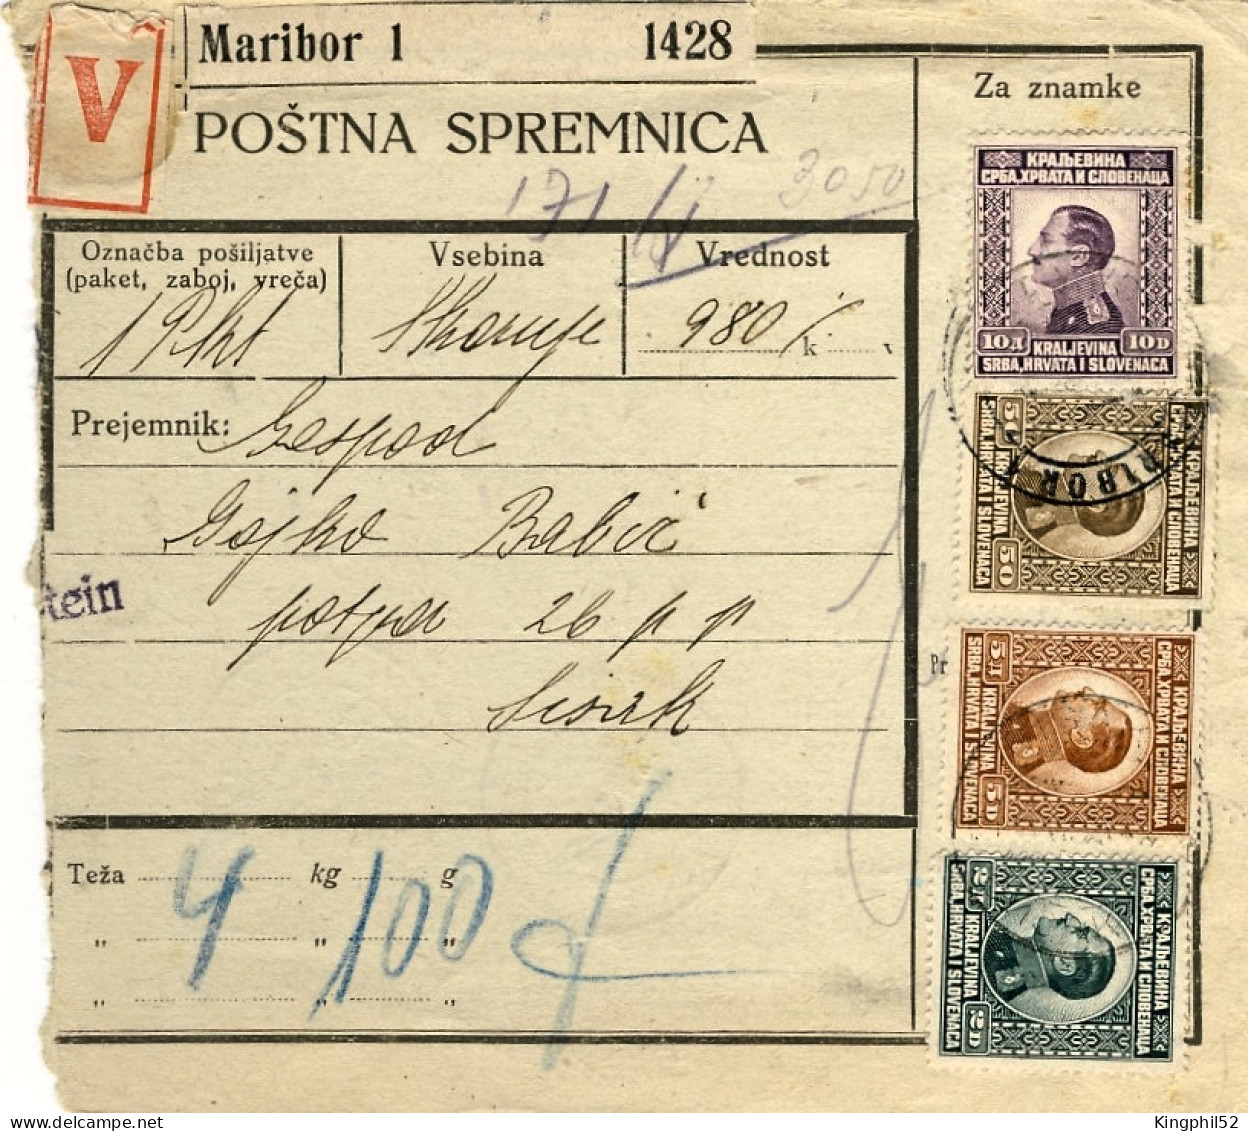 V
Maribor 1 1428
POŠTNA SPREMNICA
Za znamke
171 3050
Označba pošiljatve
(paket, zaboj, vreča)
Vsebina
Vrednost
1 Pkt
980
k
Prejemnik: Gospod
Gojko Babić
26 p p
Sisak
tein
Pr
Teža 4 kg 100 g
" " "
" " "
КРАЉЕВИНА
СРБА, ХРВАТА И СЛОВЕНАЦА
10Д 10D
KRALJEVINA
SRBA, HRVATA I SLOVENACA
КРАЉЕВИНА
СРБА, ХРВАТА И СЛОВЕНАЦА
50 50
KRALJEVINA
SRBA, HRVATA I SLOVENACA
RIBOR
КРАЉЕВИНА
СРБА, ХРВАТА И СЛОВЕНАЦА
5Д 5D
KRALJEVINA
SRBA, HRVATA I SLOVENACA
КРАЉЕВИНА
СРБА, ХРВАТА И СЛОВЕНАЦА
2Д 2D
KRALJEVINA
SRBA, HRVATA I SLOVENACA
Kingphil52